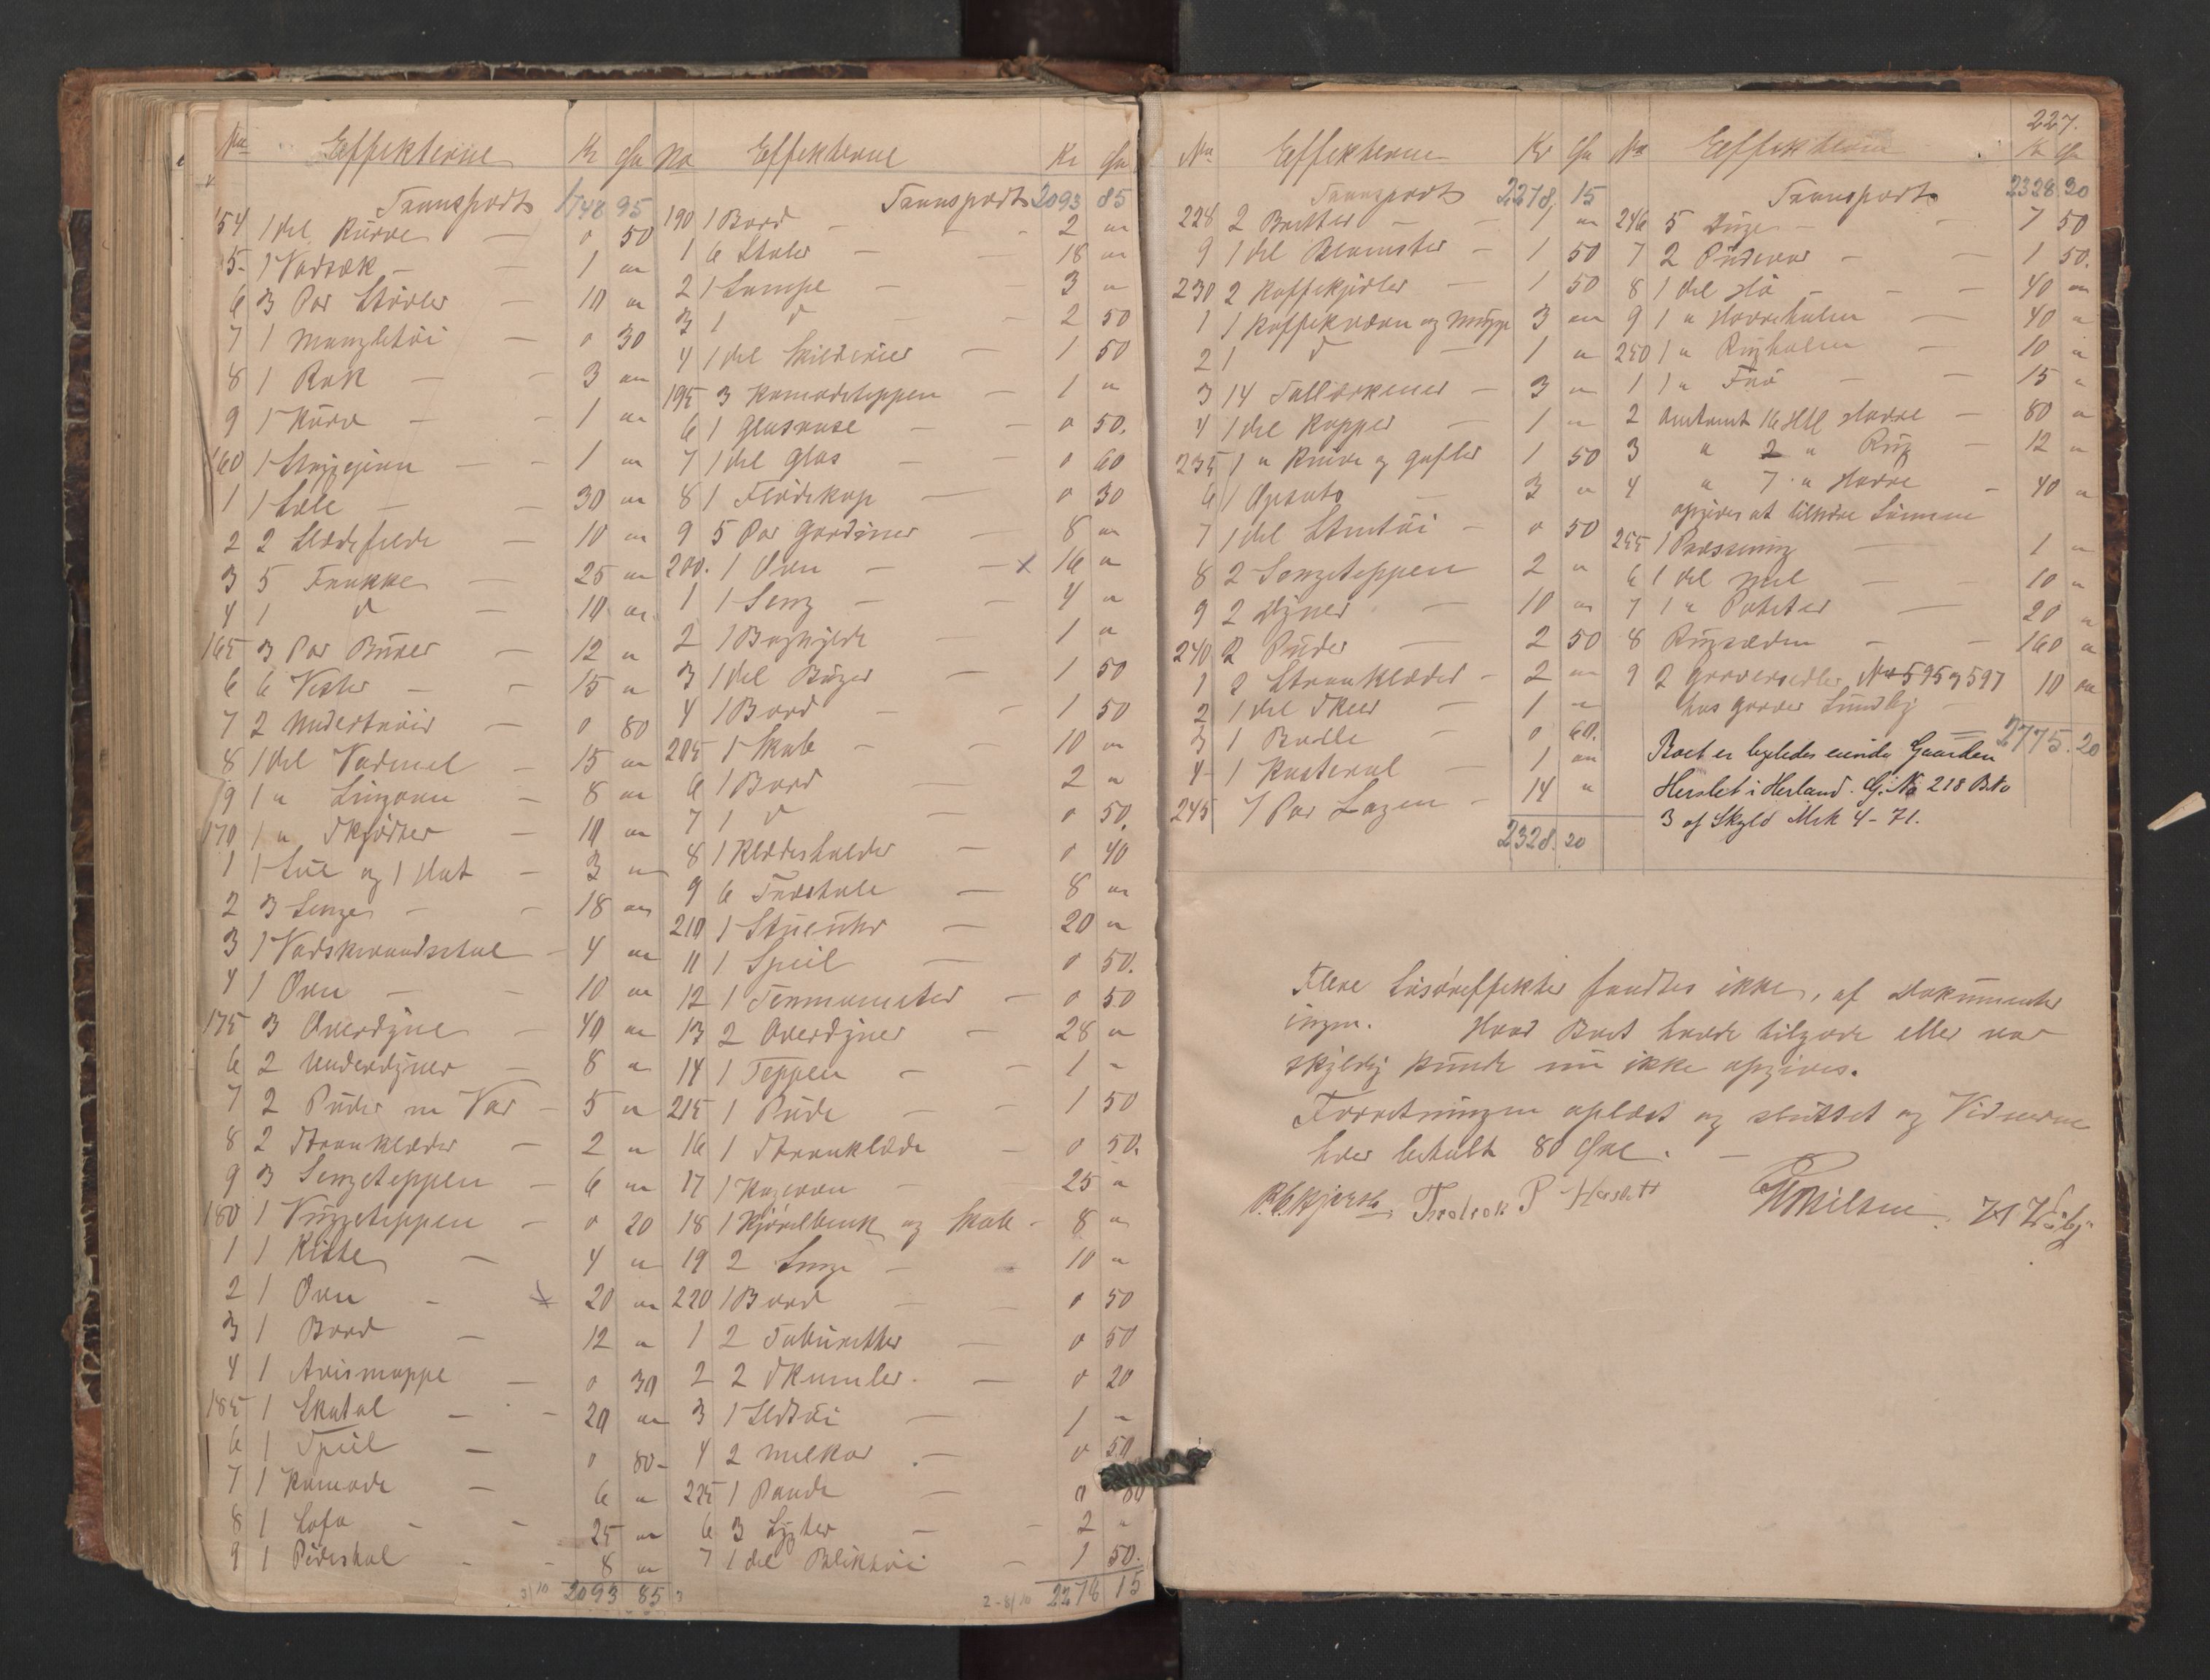 No Effekterne Kr Øre
Transport 1748 95
154 1 del Kurve — 0 50
5 1 Vadsæk — 1 "
6 3 Par Støvler — 10 "
7 1 Mangletøi — 0 30
8 1 Rok — 3 "
9 1 Kurv — 1 "
160 1 — 1 "
1 1 — 30 "
2 2 Slædefelde — 10 "
3 5 Frakke — 25 "
4 1 d — 10 "
165 3 Par Buxer — 12 "
6 6 Vester — 15 "
7 2 Undertrøier — 0 80
8 1 del Vadmel — 15 "
9 1 " — 8 "
170 1 " Skjorter — 10 "
1 1 Lue og 1 Hat — 3 "
2 3 Senge — 18 "
3 1 Vadskevandsstol — 4 "
4 1 Ovn — 10 "
175 3 Overdyne — 40 "
6 2 Underdyner — 8 "
7 2 Puder m Var — 5 "
8 2 Strøuklæder — 2 "
9 3 Sengeteppen — 6 "
180 1 Vuggeteppen — 0 20
1 1 Kiste — 4 "
2 1 Ovn — x 20 "
3 1 Bord — 12 "
4 1 Avismappe — 0 30
185 1 Skatol — 20 "
6 1 Speil — 0 80
7 1 Komode — 6 "
8 1 Sofa — 25 "
9 1 Pidestal — 8 "
3/10 2093 85
No Effekterne Kr Øre
Transport 2093 85
190 1 Bord — 2 "
1 6 Stoler — 18 "
2 1 Lampe — 3 "
3 1 d — 2 50
4 1 del Skilderier — 1 50
195 3 Komodeteppen — 1 "
6 1 Glasvase — 0 50.
7 1 del Glas — 0 60
8 1 Flødekop — 0 30
9 5 Par Gardiner — 8 "
200. 1 Ovn — x 16 "
1 1 Seng — 4 "
2 1 Boghylde — 1 "
3 1 del Bøger — 1 50
4 1 Bord — 1 50
205 1 Skab — 10 "
6 1 Bord — 2 "
7 1 d 0 50.
8 1 Klædesholder — 0 40
9 6 Træstole — 8 "
210 1 Stueuhr — 20 "
11 1 Speil — 0 50.
12 1 Termometer — 0 50
13 2 Overdyner — 28 "
14 1 Teppen — 1 "
215 1 Pude — 1 50
16 1 Strøuklæde — 0 50.
17 1 Kogeovn — 25 "
18 1 Kjørelbenk og Skab — 8 "
19 2 Senge — 10 "
220 1 Bord — 0 50
1 2 Taburetter — 0 50
2 2 Skamler. — 0 20
3 1 Ildtøi — 1 "
4 2 Melkar — 0 50
225 1 Pande — 0 80
6 3 Lygter — 2 "
7 1 del Bliktøi — 1 50.
2-8/10 2278 15
No Effekterne Kr Øre
Transport 2278, 15
228 2 Bretter — 1 "
9 1 del Blomster — 1 50
230 2 Kaffekjedler — 1 50
1 1 Kaffekværn og — 3 "
2 1 d — 1 "
3 14 Tallerkener — 3 "
4 1 del Kopper — 1 "
235 1 " Knive og Gafler 1 50
6 1 Opsats — 3 "
7 1 del Stentøi — 0 50
8 2 Sengeteppen 2 "
9 2 Dyner — 10 "
240 2 Puder — 2 50
1 2 Strøuklæder — 2 "
2 1 del Skeer — 1 "
3 1 Bolle — 0 60.
4 1 Kasterol — 1 "
245 7 Par Lagen — 14 "
2328. 20
227.
No Effekterne Kr Øre
Transport 2328 20
246 5 Duge — 7 50
7 2 Pudevar — 1 50.
8 1 del Hø — 40 "
9 1 " Havrehalm — 40 "
250 1 " Rughalm — 10 "
1 1 " Frø — 15 "
2 Omtrent 16 Htl Havre — 80 "
3 " 2 " Rug — 12 "
4 " 7 " Havre — 40 "
opgives at tilhøre Sønnen
255 1 Presening — 1 "
6 1 del Mel — 10 "
7 1 " Poteter — 20 "
8 Rugsæden — 160 "
9 2 Garversedler No 595 og 597 10 "
hos Garver Lundby
= 2775. 20
Boet er ligeledes eiende Gaarden
Herslet i Herland. G. No 218 B.No
3 af Skyld Mrk 4-71.
Flere Løsøreffekter fandtes ikke, af Dokumenter
ingen. Hvad Boet havde tilgode eller var
skyldig kunde nu ikke opgives.
Forretningen oplæst og sluttet og Vidnerne
hver betalt 80 Øre. —
Fredrek P Herslett Nilsen